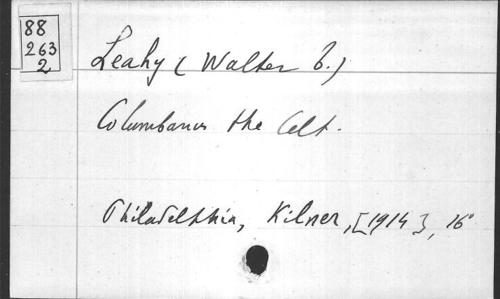 88
263
2
Leahy (Walter T.)
Columbanus the Celt.
Philadelphia, Kilner, [1914], 16°